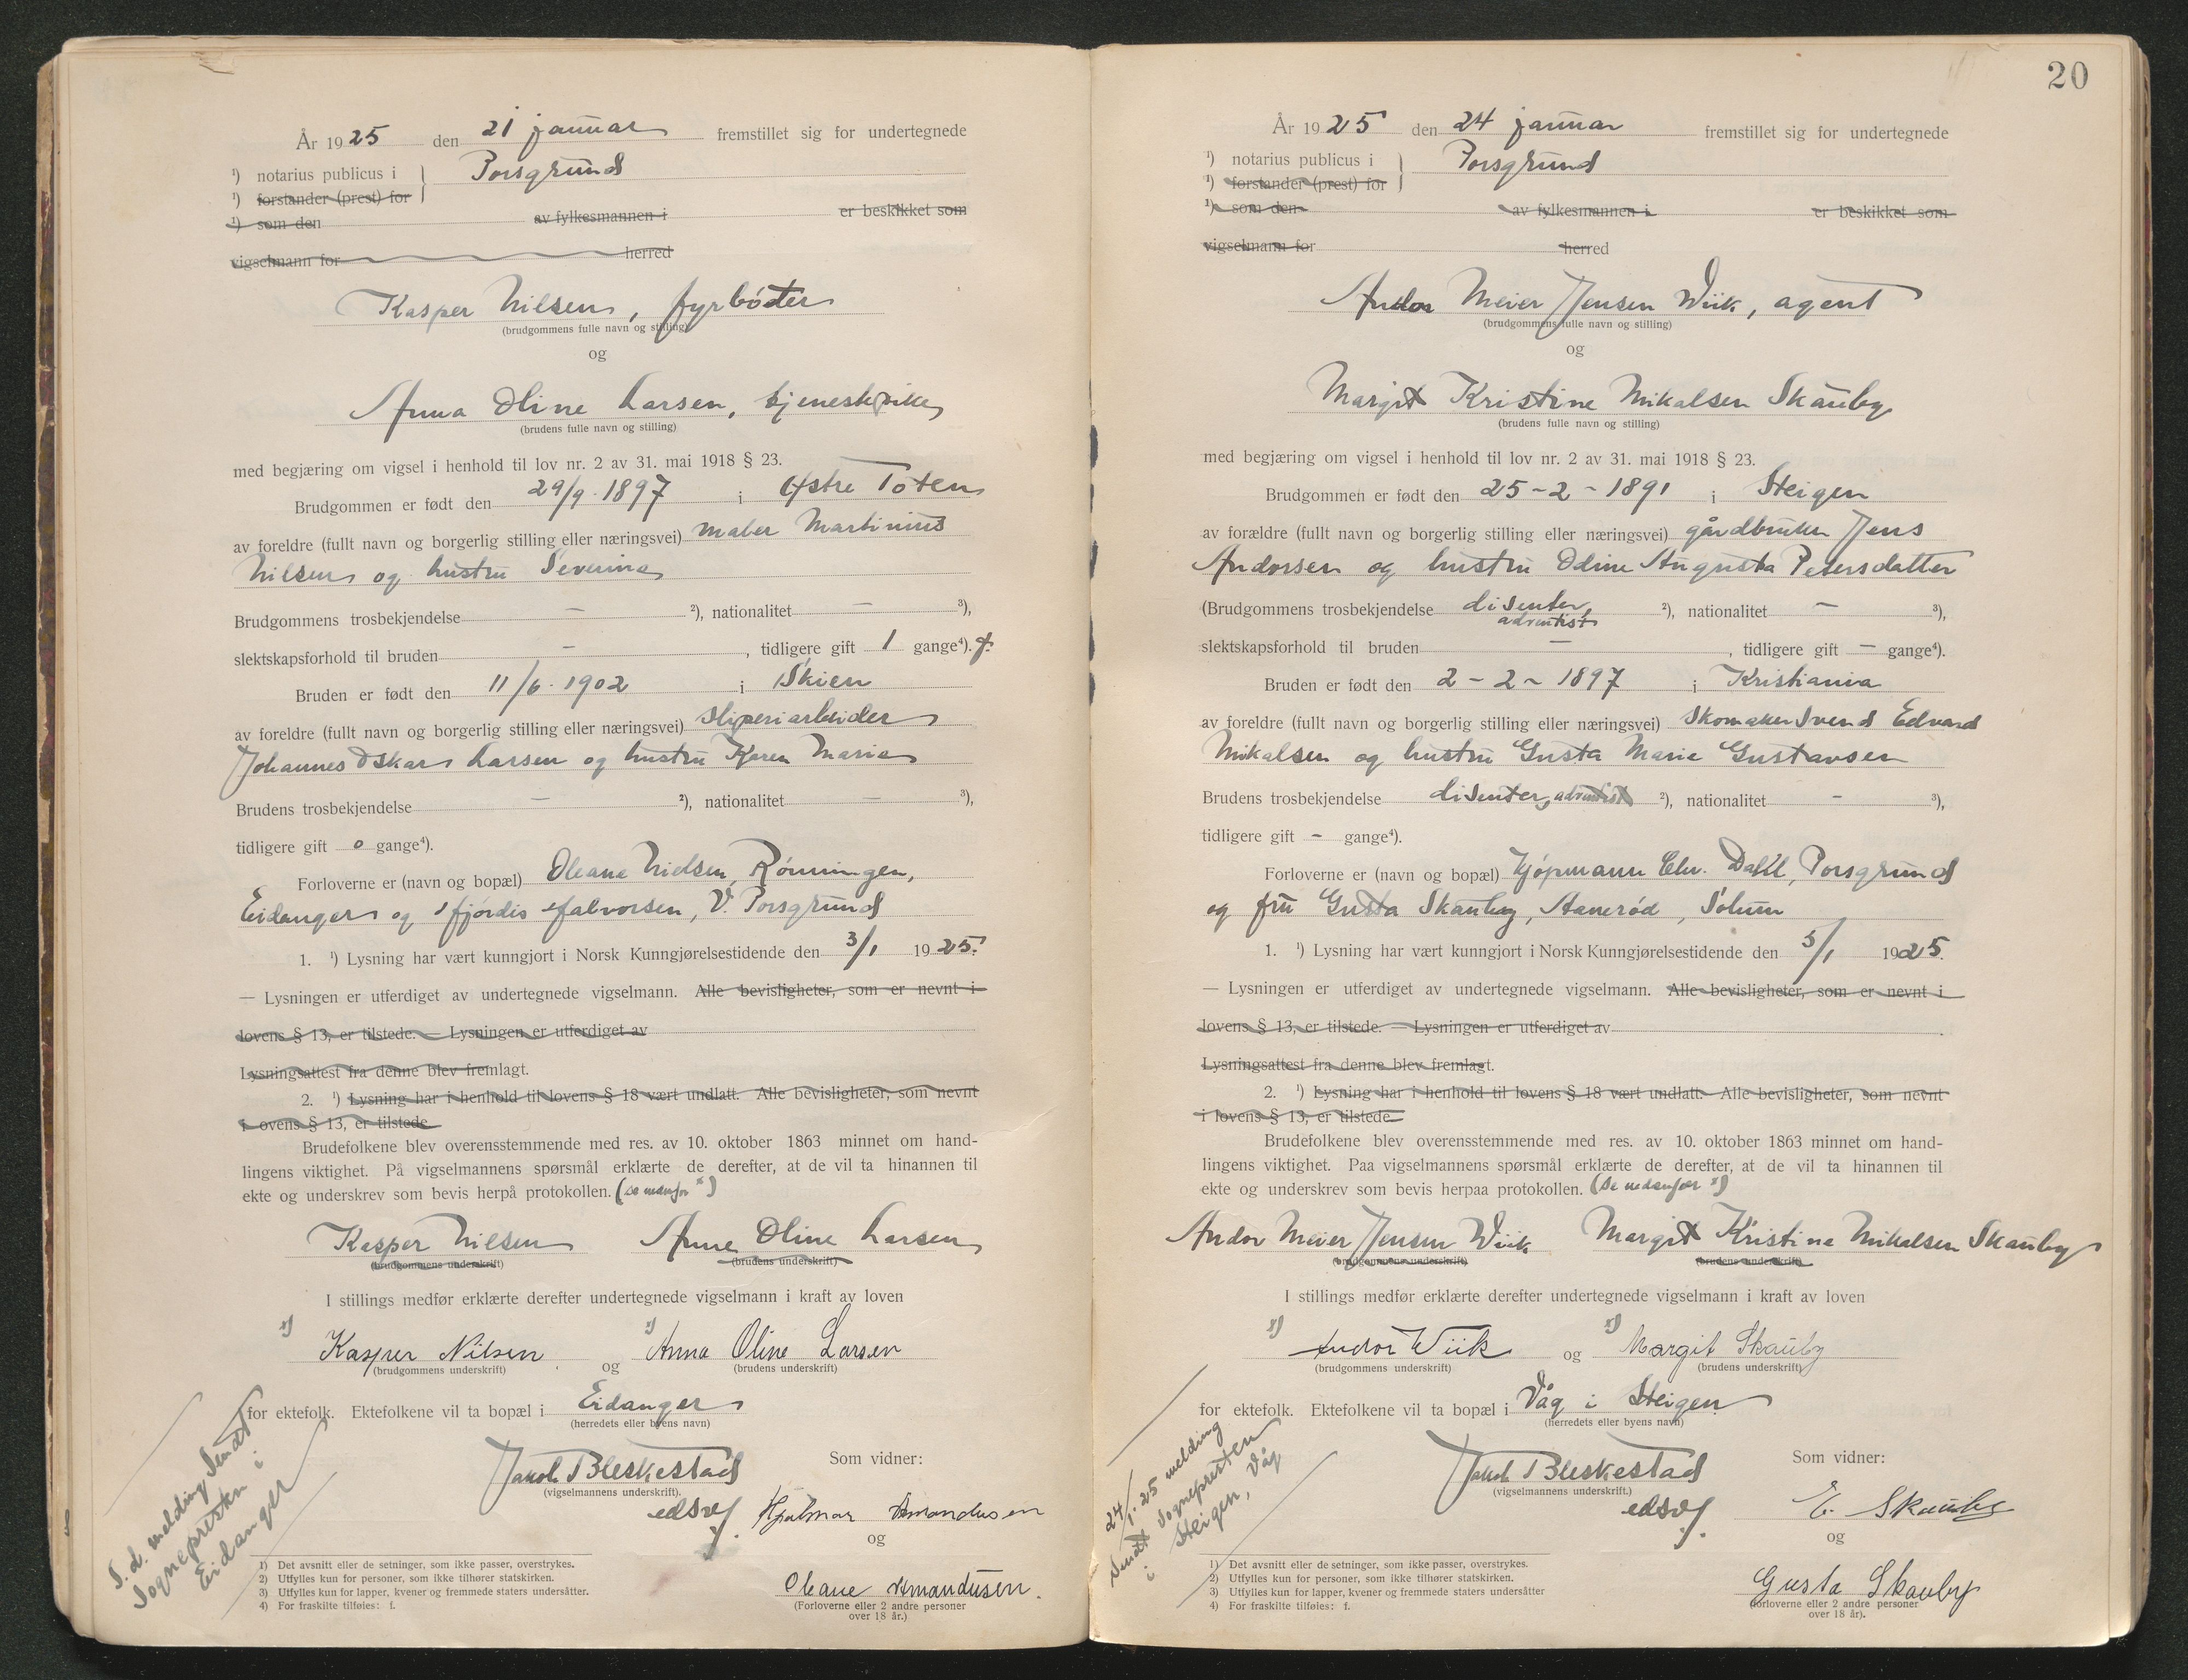 År 1925 den 21 januar fremstillet sig for undertegnede
1) notarius publicus i } Porsgrund
1) forstander (prest) for
1) som den av fylkesmannen i er beskikket som
vigselmann for herred
Kasper Nilsen, fyrbøter
(brudgommens fulle navn og stilling)
og
Anna Oline Larsen, tjenestepike
(brudens fulle navn og stilling)
med begjæring om vigsel i henhold til lov nr. 2 av 31. mai 1918 § 23.
Brudgommen er født den 29/9. 1897 i Østre Toten
av foreldre (fullt navn og borgerlig stilling eller næringsvei) maler Martinius
Nilsen og hustru Severine
Brudgommens trosbekjendelse — 2), nationalitet — 3),
slektskapsforhold til bruden — , tidligere gift 1 gange4). f.
Bruden er født den 11/6. 1902 i Skien
av foreldre (fullt navn og borgerlig stilling eller næringsvei) sliperiarbeider
Johannes Oskar Larsen og hustru Karen Marie
Brudens trosbekjendelse — 2), nationalitet — 3),
tidligere gift 0 gange4).
Forloverne er (navn og bopæl) Oleane Nielsen, Rønningen,
Eidanger og Hjørdis Halvorsen, V. Porsgrund
1. 1) Lysning har vært kunngjort i Norsk Kunngjørelsestidende den 3/1 1925.
— Lysningen er utferdiget av undertegnede vigselmann. Alle bevisligheter, som er nevnt i
lovens § 13, er tilstede. — Lysningen er utferdiget av
Lysningsattest fra denne blev fremlagt.
2. 1) Lysning har i henhold til lovens § 18 vært undlatt. Alle bevisligheter, som nevnt
i lovens § 13, er tilstede.
Brudefolkene blev overensstemmende med res. av 10. oktober 1863 minnet om hand-
lingens viktighet. På vigselmannens spørsmål erklærte de derefter, at de vil ta hinannen til
ekte og underskrev som bevis herpå protokollen. (se nedenfor x)
Kasper Nilsen Anna Oline Larsen
(brudgommens underskrift) (brudens underskrift)
I stillings medfør erklærte derefter undertegnede vigselmann i kraft av loven
x) Kasper Nilsen og x) Anna Oline Larsen
(brudgommens underskrift) (brudens underskrift)
for ektefolk. Ektefolkene vil ta bopæl i Eidanger
(herredets eller byens navn)
Jakob Bleskestad Som vidner:
(vigselmannens underskrift).
edsv f. Hjalmar Amandusen
og
Oleane Amandusen.
(Forloverne eller 2 andre personer
over 18 år.)
S. d. melding sendt
sognepresten i
Eidanger
1) Det avsnitt eller de setninger, som ikke passer, overstrykes.
2) Utfylles kun for personer, som ikke tilhører statskirken.
3) Utfylles kun for lapper, kvener og fremmede staters undersåtter.
4) For fraskilte tilføies: f.
20
År 1925 den 24 januar fremstillet sig for undertegnede
1) notarius publicus i } Porsgrund
1) forstander (prest) for
1) som den av fylkesmannen i er beskikket som
vigselmann for herred
Andor Meier Jensen Wiik, agent
(brudgommens fulle navn og stilling)
og
Margit Kristine Mikalsen Skauby
(brudens fulle navn og stilling)
med begjæring om vigsel i henhold til lov nr. 2 av 31. mai 1918 § 23.
Brudgommen er født den 25-2-1891 i Steigen
av forældre (fullt navn og borgerlig stilling eller næringsvei) gårdbruker Jens
Andorsen og hustru Odine Augusta Petersdatter
(Brudgommens trosbekjendelse disenter, adventist 2), nationalitet — 3),
slektskapsforhold til bruden — , tidligere gift — gange4).
Bruden er født den 2-2-1897 i Kristiania
av foreldre (fullt navn og borgerlig stilling eller næringsvei) Skomaker Svend Edvard
Mikalsen og hustru Gusta Marie Gustavsen
Brudens trosbekjendelse disenter, adventist 2), nationalitet - 3),
tidligere gift - gange4).
Forloverne er (navn og bopæl) Kjøpmann Chr. Dahl, Porsgrund
og fru Gusta Skauby, Stanerød, Solum
1. 1) Lysning har vært kunngjort i Norsk Kunngjørelsestidende den 5/1 1925.
— Lysningen er utferdiget av undertegnede vigselmann. Alle bevisligheter, som er nevnt i
lovens § 13, er tilstede. — Lysningen er utferdiget av
Lysningsattest fra denne blev fremlagt.
2. 1) Lysning har i henhold til lovens § 18 vært undlatt. Alle bevisligheter, som nevnt
i lovens § 13, er tilstede.
Brudefolkene blev overensstemmende med res. av 10. oktober 1863 minnet om hand-
lingens viktighet. Paa vigselmannens spørsmål erklærte de derefter, at de vil ta hinannen til
ekte og underskrev som bevis herpaa protokollen. (se nedenfor x)
Andor Meier Jensen Wiik Margit Kristine Mikalsen Skauby
(brudgommens underskrift) (brudens underskrift)
I stillings medfør erklærte derefter undertegnede vigselmann i kraft av loven
x) Andor Wiik og x) Margit Skauby
(brudgommens underskrift) (brudens underskrift)
for ektefolk. Ektefolkene vil ta bopæl i Våg i Steigen
(herredets eller byens navn)
Jakob Bleskestad Som vidner:
(vigselmannens underskrift.)
edsv f. E. Skauby
og
Gusta Skauby
(forloverne eller 2 andre personer
over 18 år).
24/1. 25 melding
sendt sognepresten
i Steigen, Våg
1) Det avsnitt eller de setninger, som ikke passer, overstrykes.
2) Utfylles kun for personer, som ikke tilhører statskirken.
3) Utfylles kun for lapper, kvener og fremmede staters undersåtter
4) For fraskilte tilføies: f.